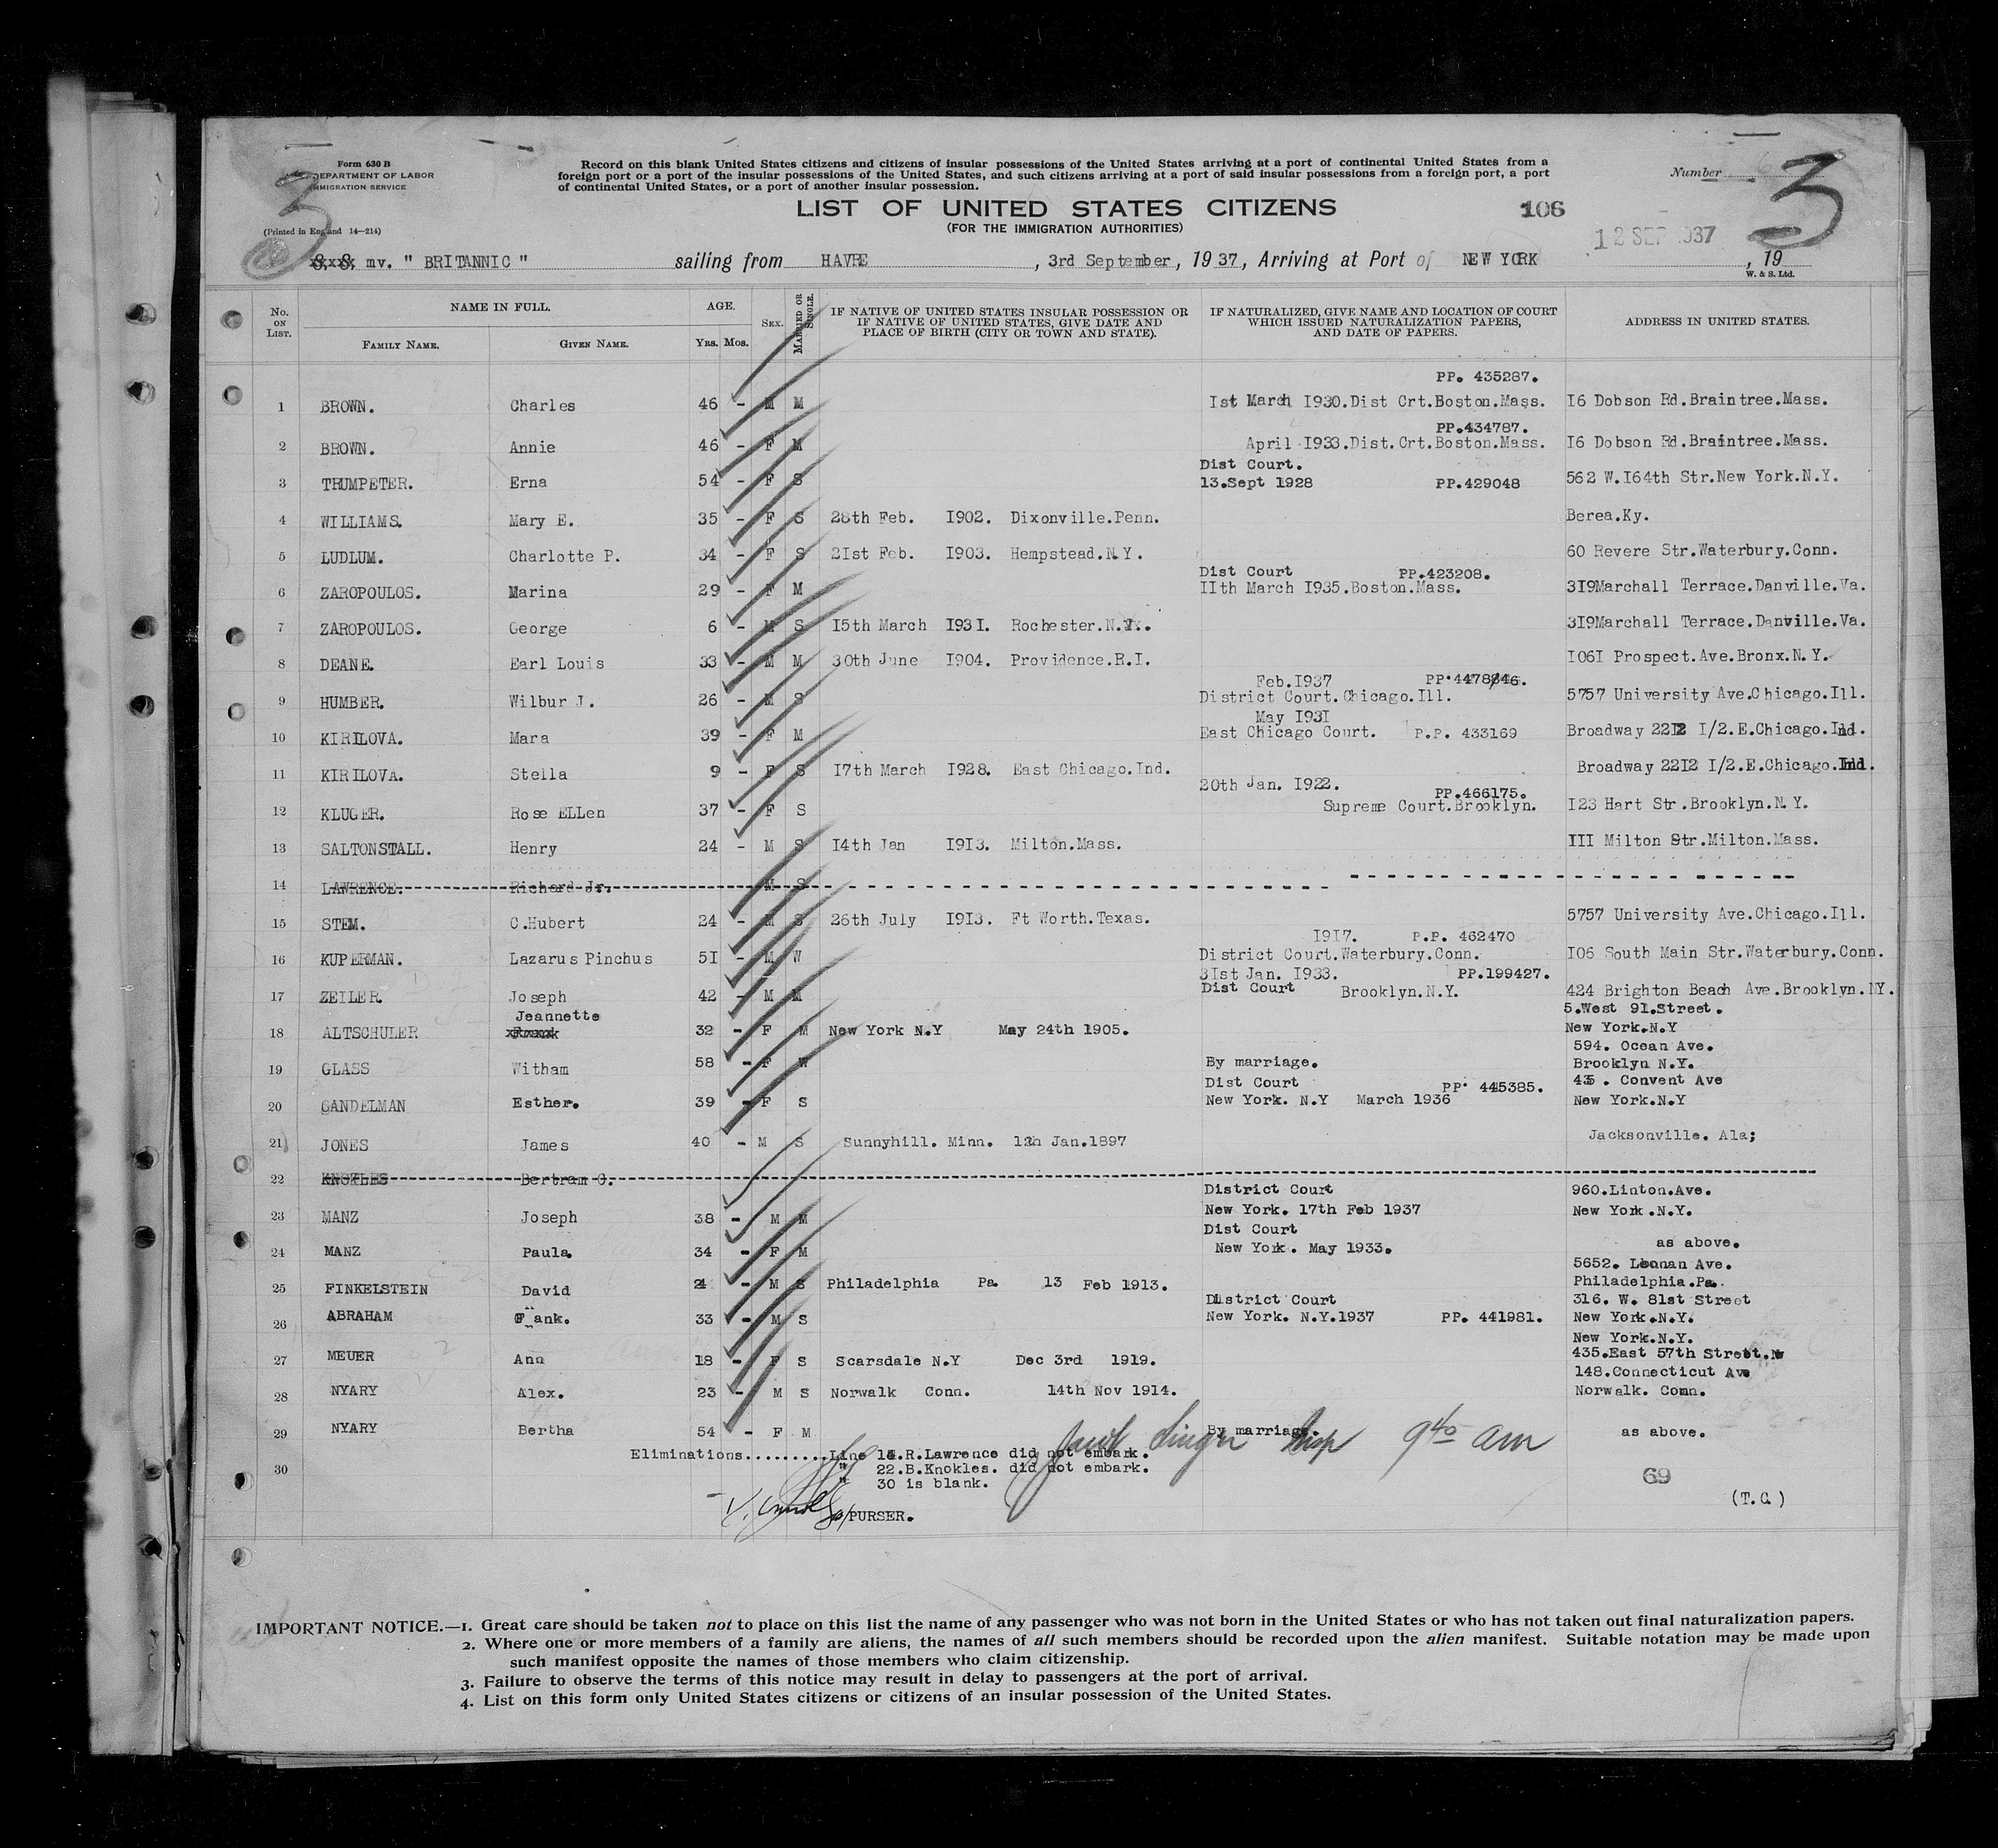 Form 630 B
DEPARTMENT OF LABOR
IMMIGRATION SERVICE
(Printed in England 14—214)
3
Record on this blank United States citizens and citizens of insular possessions of the United States arriving at a port of continental United States from a
foreign port or a port of the insular possessions of the United States, and such citizens arriving at a port of said insular possessions from a foreign port, a port
of continental United States, or a port of another insular possession.
Number
3
LIST OF UNITED STATES CITIZENS
(FOR THE IMMIGRATION AUTHORITIES)
106
12 SEP 1937
S.S. mv. " BRITANNIC " sailing from HAVRE , 3rd September, 1937, Arriving at Port of NEW YORK , 19
W. & S. Ltd.
No. ON LIST. NAME IN FULL. FAMILY NAME. GIVEN NAME. AGE. YRS. MOS. SEX. MARRIED OR SINGLE. IF NATIVE OF UNITED STATES INSULAR POSSESSION OR IF NATIVE OF UNITED STATES, GIVE DATE AND PLACE OF BIRTH (CITY OR TOWN AND STATE). IF NATURALIZED, GIVE NAME AND LOCATION OF COURT WHICH ISSUED NATURALIZATION PAPERS, AND DATE OF PAPERS. ADDRESS IN UNITED STATES.
PP. 435287.
1 BROWN. Charles 46 - M M 1st March 1930.Dist Crt.Boston.Mass. 16 Dobson Rd.Braintree.Mass.
PP.434787.
2 BROWN. Annie 46 - F M April 1933.Dist.Crt.Boston.Mass. 16 Dobson Rd.Braintree.Mass.
Dist Court.
3 TRUMPETER. Erna 54 - F S 13.Sept 1928 PP.429048 562 W.164th Str.New York.N.Y.
4 WILLIAMS. Mary E. 35 - F S 28th Feb. 1902. Dixonville.Penn. Berea.Ky.
5 LUDLUM. Charlotte P. 34 - F S 21st Feb. 1903. Hempstead.N.Y. 60 Revere Str.Waterbury.Conn.
Dist Court PP.423208.
6 ZAROPOULOS. Marina 29 - F M 11th March 1935.Boston.Mass. 319Marchall Terrace.Danville.Va.
7 ZAROPOULOS. George 6 - M S 15th March 1931. Rochester.N.Y. 319Marchall Terrace.Danville.Va.
8 DEANE. Earl Louis 33 - M M 30th June 1904. Providence.R.I. 1061 Prospect.Ave.Bronx.N.Y.
Feb.1937
9 HUMBER. Wilbur J. 26 - M S District Court.Chicago.Ill. 5757 University Ave.Chicago.Ill.
May 1931
10 KIRILOVA. Mara 39 - F M East Chicago Court. P.P. 433169 Broadway 2212 1/2.E.Chicago.Ind.
11 KIRILOVA. Stella 9 - F S 17th March 1928. East Chicago.Ind. Broadway 2212 1/2.E.Chicago.Ind.
20th Jan. 1922. PP.466175.
12 KLUGER. Rose ELLen 37 - F S Supreme Court.Brooklyn. 123 Hart Str.Brooklyn.N.Y.
13 SALTONSTALL. Henry 24 - M S 14th Jan 1913. Milton.Mass. 111 Milton Str.Milton.Mass.
14 LAWRENCE. Richard Jr. M S
15 STEM. C.Hubert 24 - M S 26th July 1913. Ft Worth.Texas. 5757 University Ave.Chicago.Ill.
1917. P.P. 462470
16 KUPERMAN. Lazarus Pinchus 51 - M W District Court.Waterbury.Conn. 106 South Main Str.Waterbury.Conn.
31st Jan. 1933. PP.199427.
17 ZEILER. Joseph 42 - M M Dist Court Brooklyn.N.Y. 424 Brighton Beach Ave.Brooklyn.NY.
Jeannette 5.West 91.Street.
18 ALTSCHULER 32 - F M New York N.Y May 24th 1905. New York.N.Y
594. Ocean Ave.
19 GLASS Witham 58 - F W By marriage. Brooklyn N.Y.
Dist Court PP. 445385. Convent Ave
20 GANDELMAN Esther. 39 - F S New York. N.Y March 1936 New York.N.Y
21 JONES James 40 - M S Sunnyhill. Minn. Jan.1897 Jacksonville. Ala;
22 KNOKLES Bertram C.
District Court 960.Linton.Ave.
23 MANZ Joseph 38 - M M New York. 17th Feb 1937 New York .N.Y.
Dist Court
24 MANZ Paula. 34 - F M New York. May 1933. as above.
5652. Ave.
25 FINKELSTEIN David - M S Philadelphia Pa. 13 Feb 1913. Philadelphia.Pa.
District Court 316. W. 81st Street
26 ABRAHAM 33 - M S New York. N.Y.1937 PP. 441981. New York.N.Y.
New York.N.Y.
27 MEUER Ann 18 - F S Scarsdale N.Y Dec 3rd 1919. 435.East 57th Street.
148.Connecticut Ave
28 NYARY Alex. 23 - M S Norwalk Conn. 14th Nov 1914. Norwalk. Conn.
29 NYARY Bertha 54 - F M By marriage. as above.
Eliminations.........Line 14.R.Lawrence did not embark.
30 " 22.B.Knokles. did not embark.
" 30 is blank.
9 40 am
69
(T.C.)
PURSER.
IMPORTANT NOTICE.—1. Great care should be taken not to place on this list the name of any passenger who was not born in the United States or who has not taken out final naturalization papers.
2. Where one or more members of a family are aliens, the names of all such members should be recorded upon the alien manifest. Suitable notation may be made upon
such manifest opposite the names of those members who claim citizenship.
3. Failure to observe the terms of this notice may result in delay to passengers at the port of arrival.
4. List on this form only United States citizens or citizens of an insular possession of the United States.